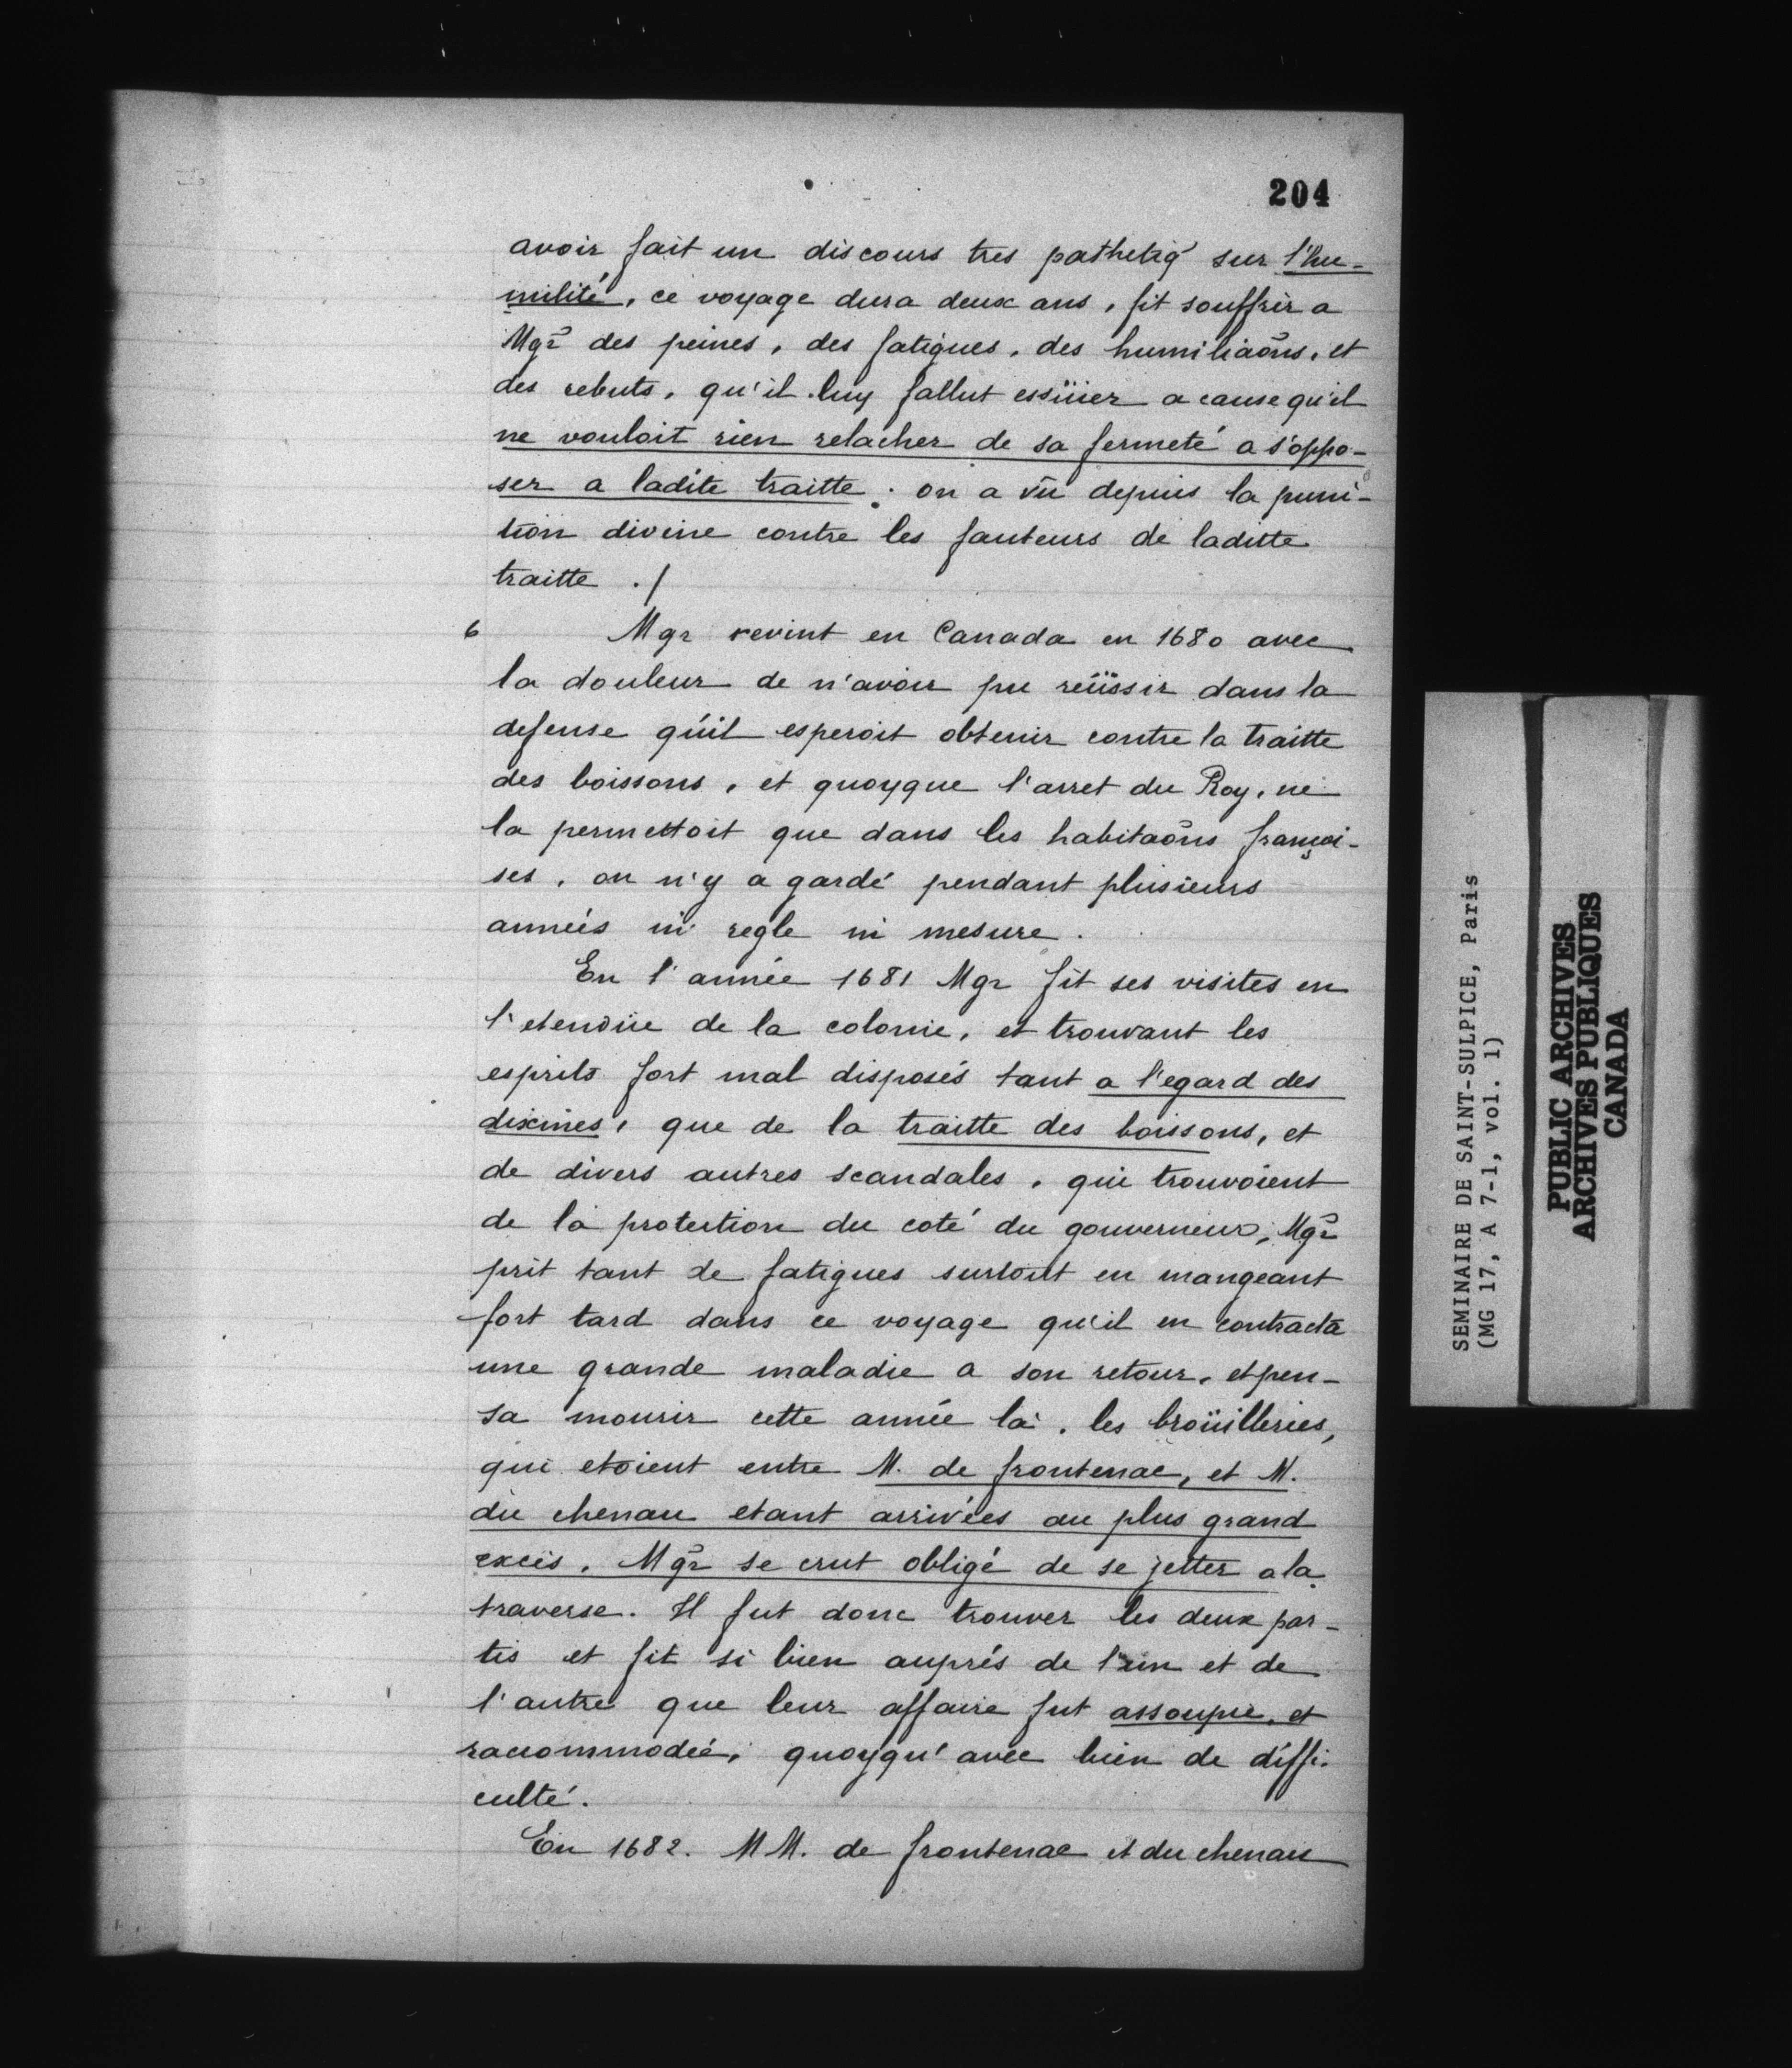 204
avoir fait un discours tres pathetiq̃ sur l'hu-
milité, ce voyage dura deux ans, fit souffrir a
Mgr̃ des peines, des fatigues, des humiliaõns, et
des rebuts, qu'il luy fallut essüier a cause qu'il
ne vouloit rien relacher de sa fermeté a s'oppo-
ser a ladite traitte. on a vû depuis la puni-
tion divine contre les fauteurs de laditte
traitte ./
6 Mgr revint en Canada en 1680 avec
la douleur de n'avoir pu reüssir dans la
defense qu'il esperoit obtenir contre la traitte
des boissons, et quoyque l'arret du Roy, ne
la permettoit que dans les habitaõns françoi-
ses, on n'y a gardé pendant plusieurs
années ni regle ni mesure.
En l'année 1681 Mgr fit ses visites en
l'etendüe de la colonie, et trouvant les
esprits fort mal disposés tant a l'egard des
dixmes, que de la traitte des boissons, et
de divers autres scandales, qui trouvoient
de la protection du coté du gouverneur, Mgr̃
prit tant de fatigues surtout en mangeant
fort tard dans ce voyage qu'il en contracta
une grande maladie a son retour, et pen-
sa mourir cette année là. les broüilleries,
qui etoient entre M. de frontenac, et M.
du chenau etant arrivées au plus grand
excés, Mgr̃ se crut obligé de se jetter a la
traverse. Il fut donc trouver les deux par-
tis et fit si bien auprés de l'un et de
l'autre que leur affaire fut assoupie, et
raccommodée, quoyqu'avec bien de diffi-
culté.
En 1682. MM. de frontenac et du chenau
SEMINAIRE DE SAINT-SULPICE, Paris
(MG 17, A 7-1, vol. 1)
PUBLIC ARCHIVES
ARCHIVES PUBLIQUES
CANADA